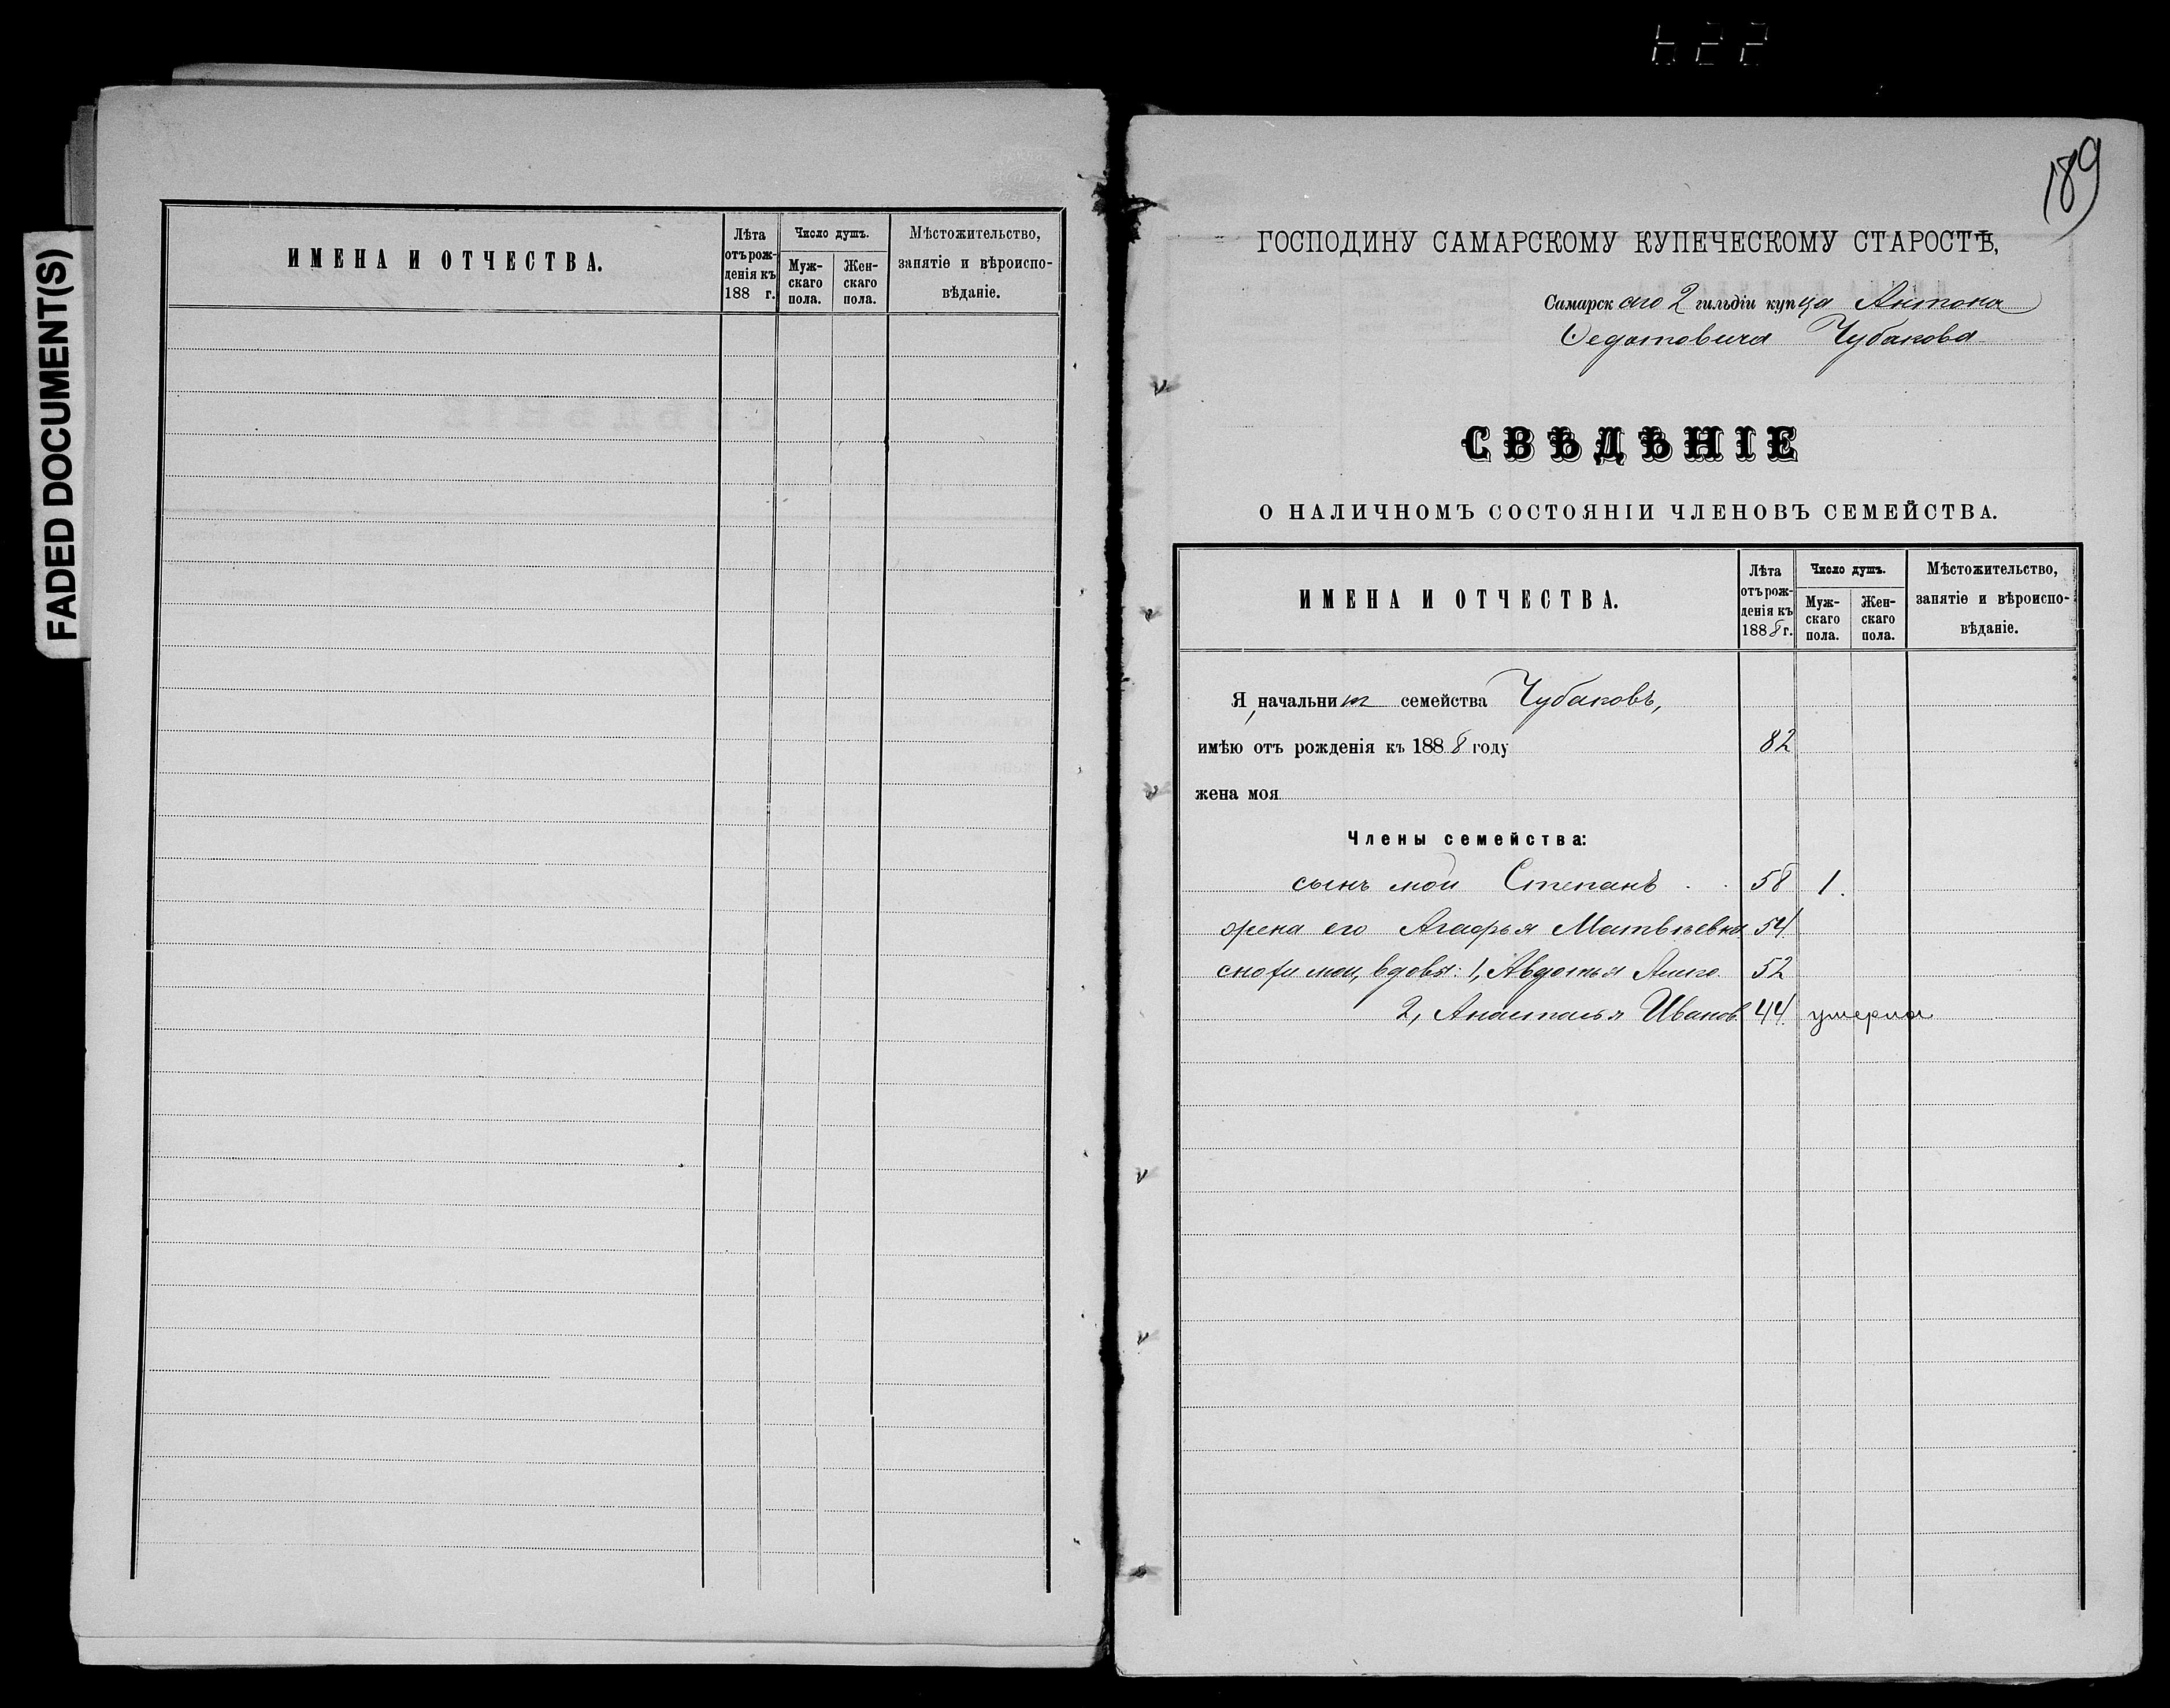 FADED DOCUMENT(S)
ИМЕНА И ОТЧЕСТВА.
Лѣта отъ рож-
денія къ
188 г.
Число душъ.
Муж-
скаго
пола.
Жен-
скаго
пола.
Мѣстожительство,
занятіе и вѣроиспо-
вѣданіе.
189
ГОСПОДИНУ САМАРСКОМУ КУПЕЧЕСКОМУ СТАРОСТѢ,
Самарскаго 2 гильдіи купца Антона
Ѳедотовича Чубакова
СВѢДѢНІЕ
О НАЛИЧНОМЪ СОСТОЯНІИ ЧЛЕНОВЪ СЕМЕЙСТВА.
ИМЕНА И ОТЧЕСТВА.
Лѣта
отъ рож-
денія къ
1888 г.
Число душъ.
Муж-
скаго
пола.
Жен-
скаго
пола.
Мѣстожительство,
занятіе и вѣроиспо-
вѣданіе.
Я, начальникъ семейства Чубаковъ,
имѣю отъ рожденія къ 1888 году 82
жена моя
Члены семейства:
сынъ мой Степанъ 58 1.
жена его Агафья Матвѣевна 54
снохи мои, вдовы: 1, Авдотья 52
2, Анастасья Иванов. 44 умерла